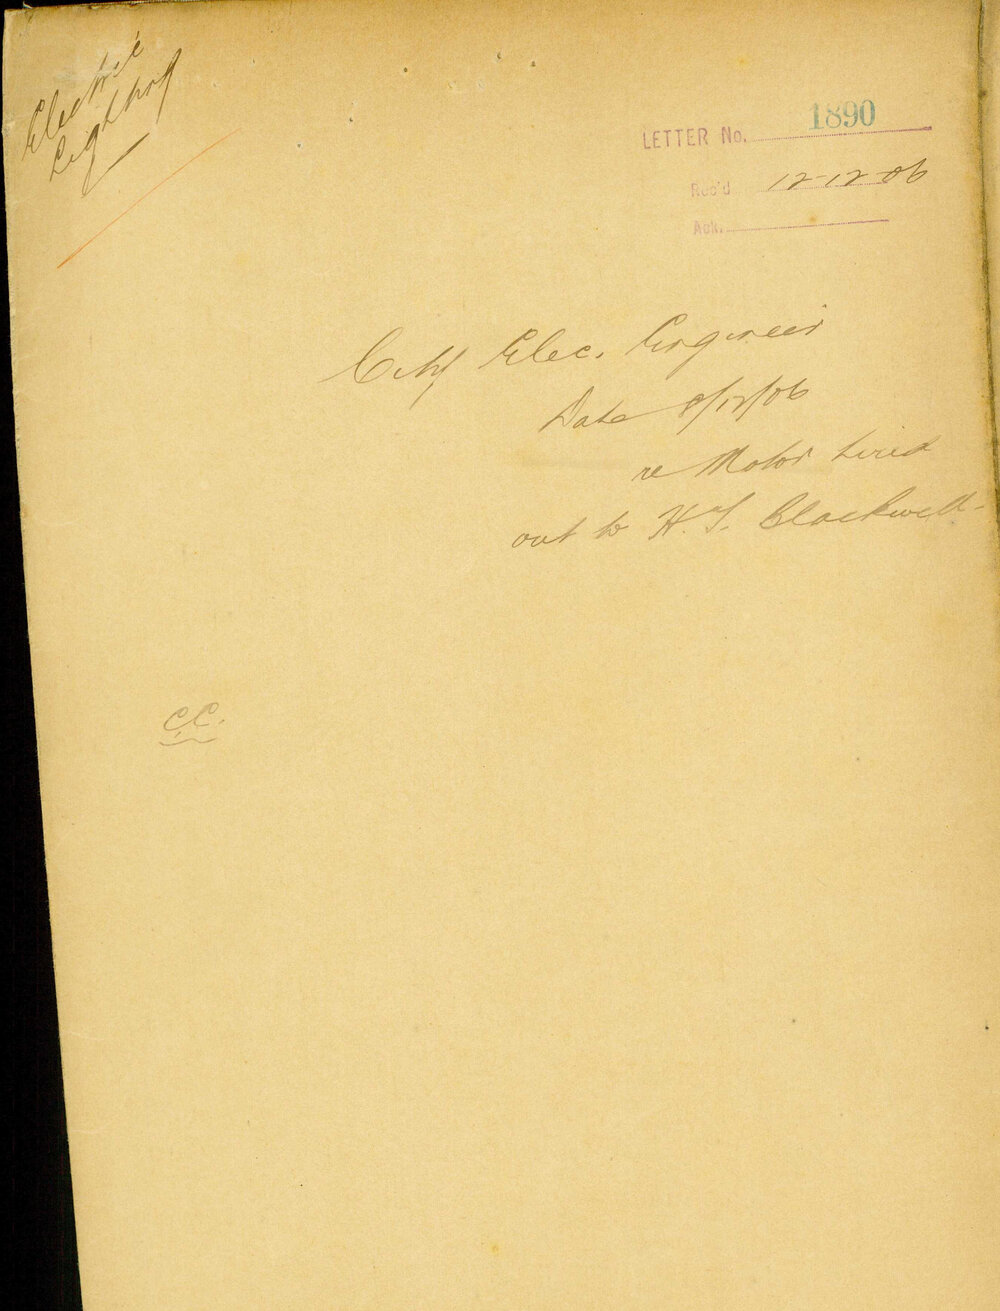 Electric
Lighting
LETTER No. 1890
Rec'd 12-12-06
Ack.
City Elec. Engineer
Date 8/12/06
re Motor hired
out to H. S. Blackwell-
C.C.